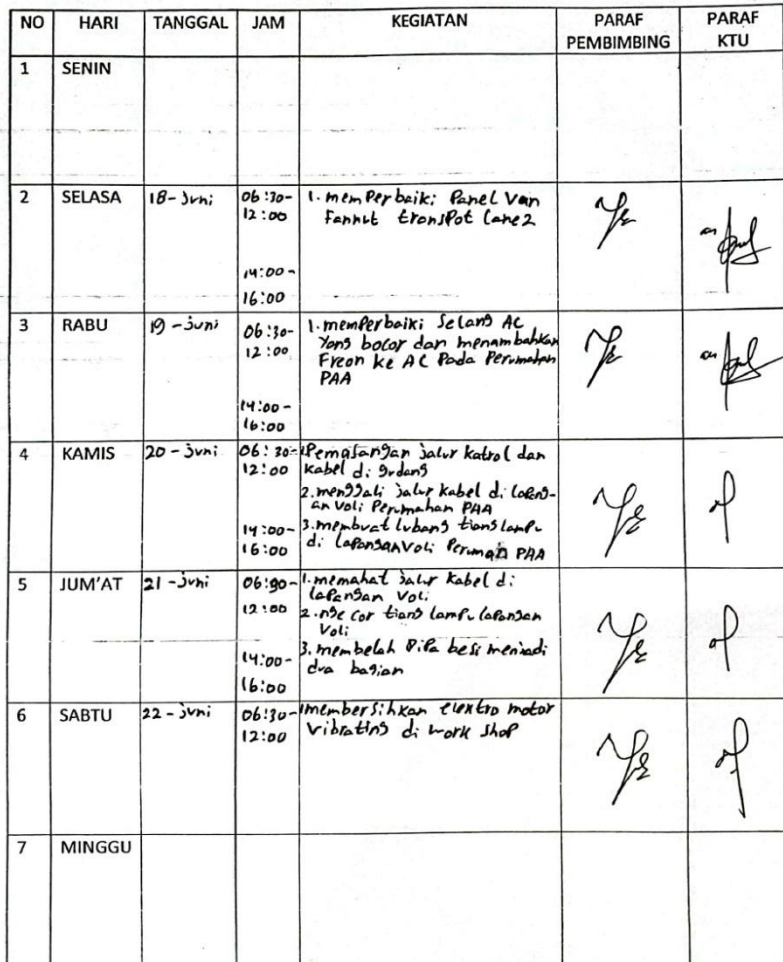 NO HARI TANGGAL JAM KEGIATAN PARAF PEMBIMBING PARAF KTU
1 SENIN
2 SELASA 18-Juni 06:30- 1. memperbaiki Panel Van
12:00 Fannut transpot Lane 2
14:00-
16:00
3 RABU 19-juni 06:30- 1. memperbaiki Selang AC
12:00 Yang bocor dan menambahkan
Freon ke AC Pada Perumahan
PAA
14:00-
16:00
4 KAMIS 20-Juni 06:30- 1 Pemasangan jalur katrol dan
12:00 kabel di gudang
2. menggali jalur kabel di lapang-
an voli Perumahan PAA
14:00- 3. membuat lubang tiang lampu
16:00 di lapangan Voli Peruman PAA
5 JUM'AT 21-Juni 06:30- 1. memahat jalur kabel di
lapangan Voli
12:00 2. nge cor tiang lampu lapangan
Voli
14:00- 3. membelah Pipa besi menjadi
16:00 dua bagian
6 SABTU 22-Juni 06:30- 1 membersihkan elektro motor
12:00 Vibrating di work shop
7 MINGGU